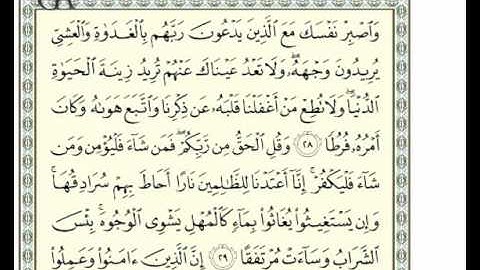 وَٱصۡبِرۡ نَفۡسَكَ مَعَ ٱلَّذِينَ يَدۡعُونَ رَبَّهُم بِٱلۡغَدَوٰةِ وَٱلۡعَشِيِّ
يُرِيدُونَ وَجۡهَهُۥۖ وَلَا تَعۡدُ عَيۡنَاكَ عَنۡهُمۡ تُرِيدُ زِينَةَ ٱلۡحَيَوٰةِ
ٱلدُّنۡيَاۖ وَلَا تُطِعۡ مَنۡ أَغۡفَلۡنَا قَلۡبَهُۥ عَن ذِكۡرِنَا وَٱتَّبَعَ هَوَىٰهُ وَكَانَ
أَمۡرُهُۥ فُرُطٗا ٢٨ وَقُلِ ٱلۡحَقُّ مِن رَّبِّكُمۡۖ فَمَن شَآءَ فَلۡيُؤۡمِن وَمَن
شَآءَ فَلۡيَكۡفُرۡۚ إِنَّآ أَعۡتَدۡنَا لِلظَّٰلِمِينَ نَارًا أَحَاطَ بِهِمۡ سُرَادِقُهَاۚ
وَإِن يَسۡتَغِيثُواْ يُغَاثُواْ بِمَآءٖ كَٱلۡمُهۡلِ يَشۡوِي ٱلۡوُجُوهَۚ بِئۡسَ
ٱلشَّرَابُ وَسَآءَتۡ مُرۡتَفَقًا ٢٩ إِنَّ ٱلَّذِينَ ءَامَنُواْ وَعَمِلُواْ